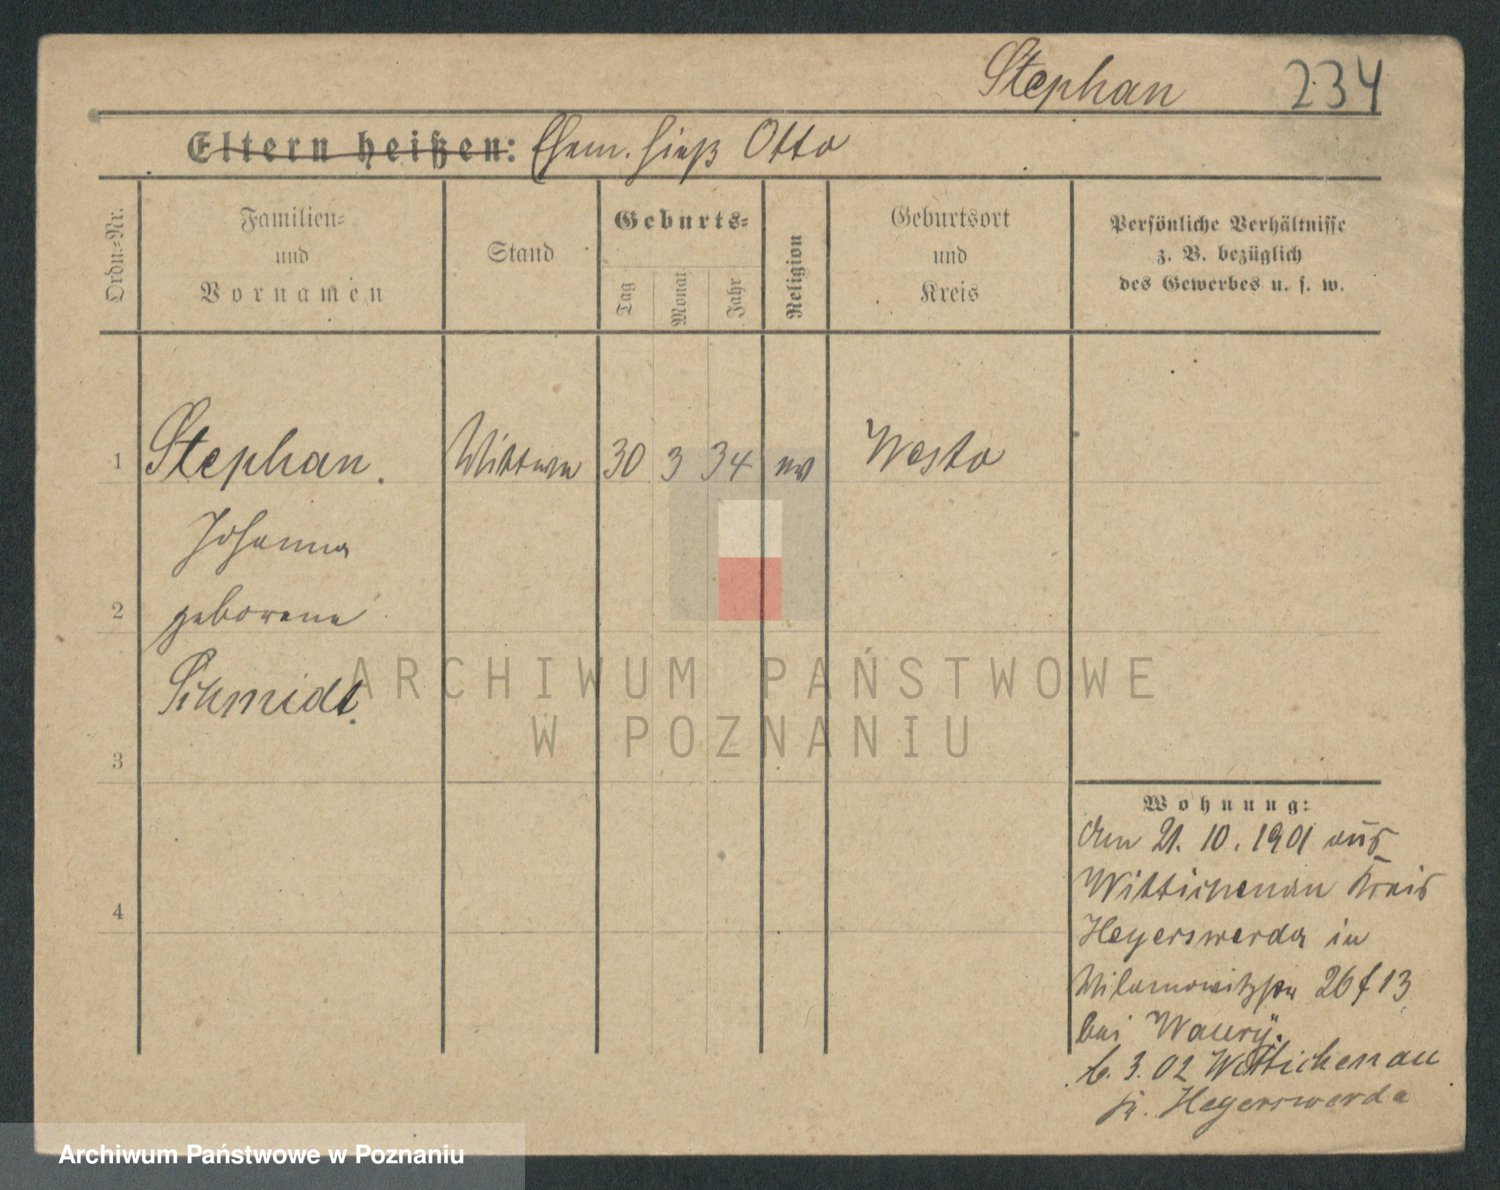 Stephan 234
Eltern heißen: Ehem. hieß Otto
Ordn.=Nr.
Familien=
und
Vornamen
Stand
Geburts=
Tag
Monat
Jahr
Religion
Geburtsort
und
Kreis
Persönliche Verhältnisse
z. B. bezüglich
des Gewerbes u. s. w.
1 Stephan. Wittwe 30 3 34 ev Westo
Johanna
2 geborene
Schmidt.
3
4
Wohnung:
den 21. 10. 1901 aus
Wittichenau Kreis
Heyerswerda in
Wilamowitzstr 26 f 13
bei Waury.
6. 3. 02 Wittichenau
Heyerswerda
ARCHIWUM PAŃSTWOWE
W POZNANIU
Archiwum Państwowe w Poznaniu